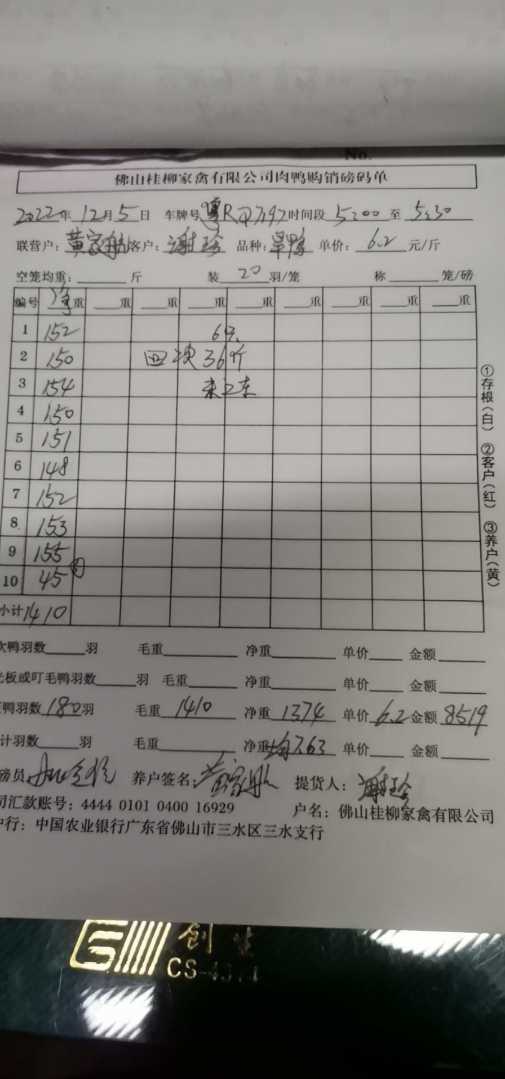 No.
佛山桂柳家禽有限公司肉鸭购销磅码单
2022年 12月5日 车牌号 粤R 7192 时间段 5:00 至 5:30
联营户: 黄家 客户: 谢珍 品种: 旱鸭 单价: 6.2 元/斤
空笼均重: 斤 装 20 羽/笼 称 笼/磅
编号 净重 重 重 重 重 重 重 重
1 152
2 150 36斤
3 154
4 150
5 151
6 148
7 152
8 153
9 155
10 45
小计 1410
①存根(白) ②客户(红) ③养户(黄)
鸭羽数 羽 毛重 净重 单价 金额
板或叮毛鸭羽数 羽 毛重 净重 单价 金额
鸭羽数 180羽 毛重 1410 净重 1374 单价 6.2 金额 8519
计羽数 羽 毛重 净重 均7.63 单价 金额
磅员: 养户签名: 黄家 提货人: 谢珍
司汇款账号: 4444 0101 0400 16929 户名: 佛山桂柳家禽有限公司
户行: 中国农业银行广东省佛山市三水区三水支行
创
CS-